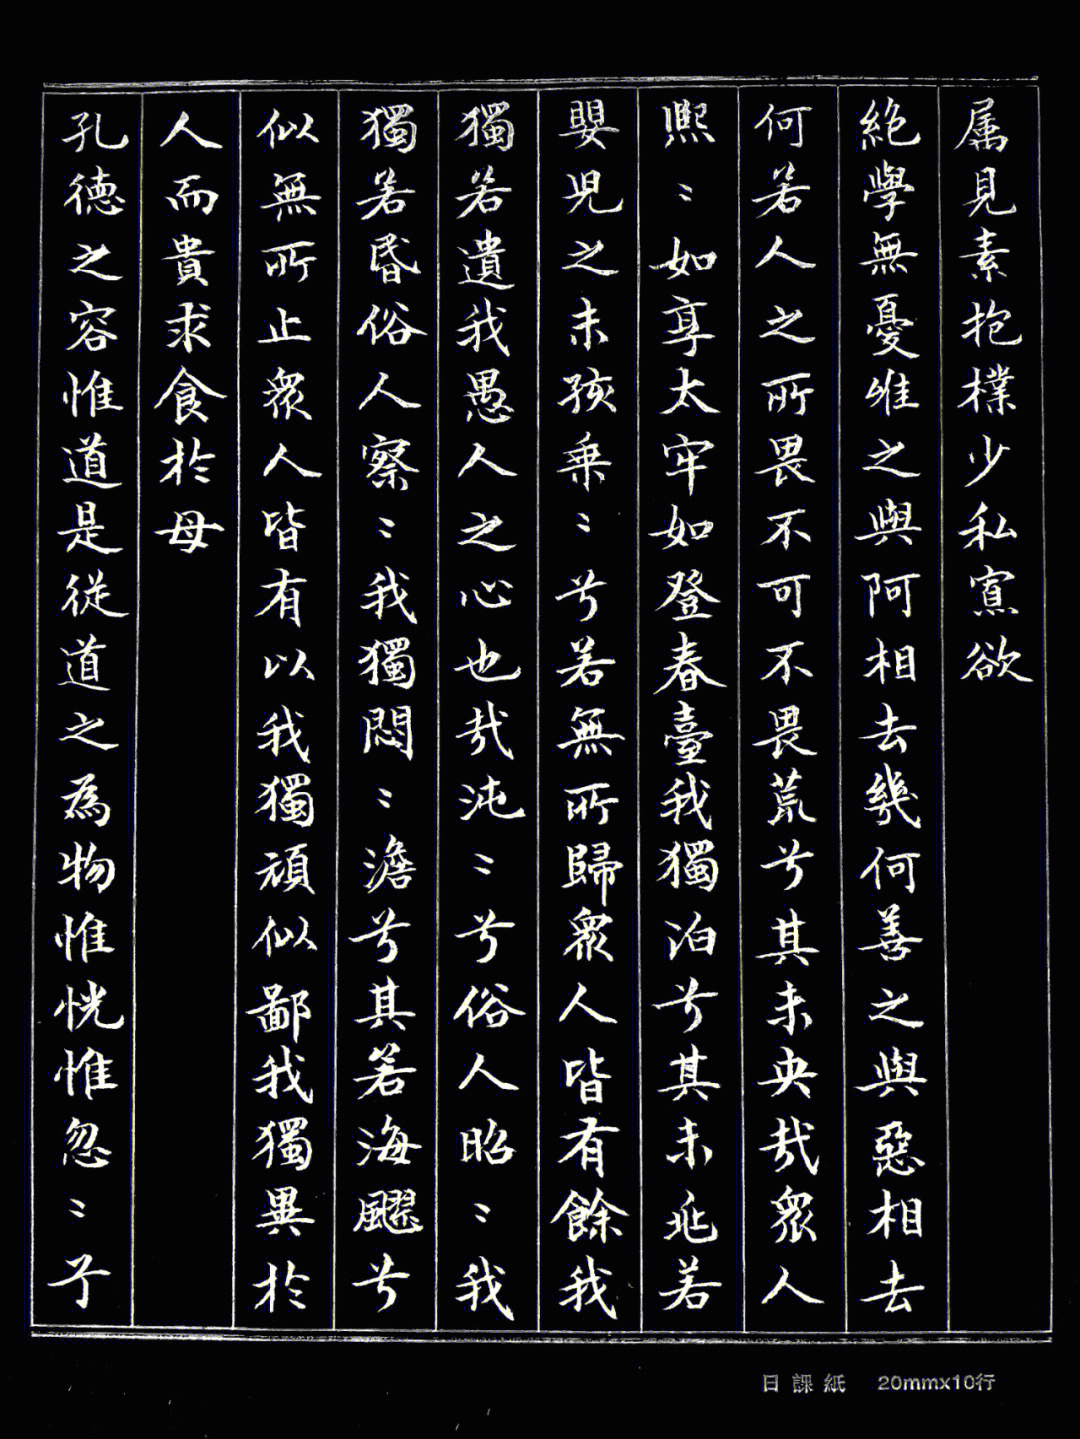 属見素抱樸少私寡欲
絶學無憂唯之與阿相去幾何善之與惡相去
何若人之所畏不可不畏荒兮其未央哉眾人
熙〻如享太牢如登春臺我獨泊兮其未兆若
嬰児之未孩乗〻兮若無所歸眾人皆有餘我
獨若遺我愚人之心也哉沌〻兮俗人昭〻我
獨若昏俗人察〻我獨悶〻澹兮其若海飂兮
似無所止眾人皆有以我獨頑似鄙我獨異於
人而貴求食於母
孔德之容惟道是従道之為物惟恍惟忽〻兮
日課紙 20mmx10行